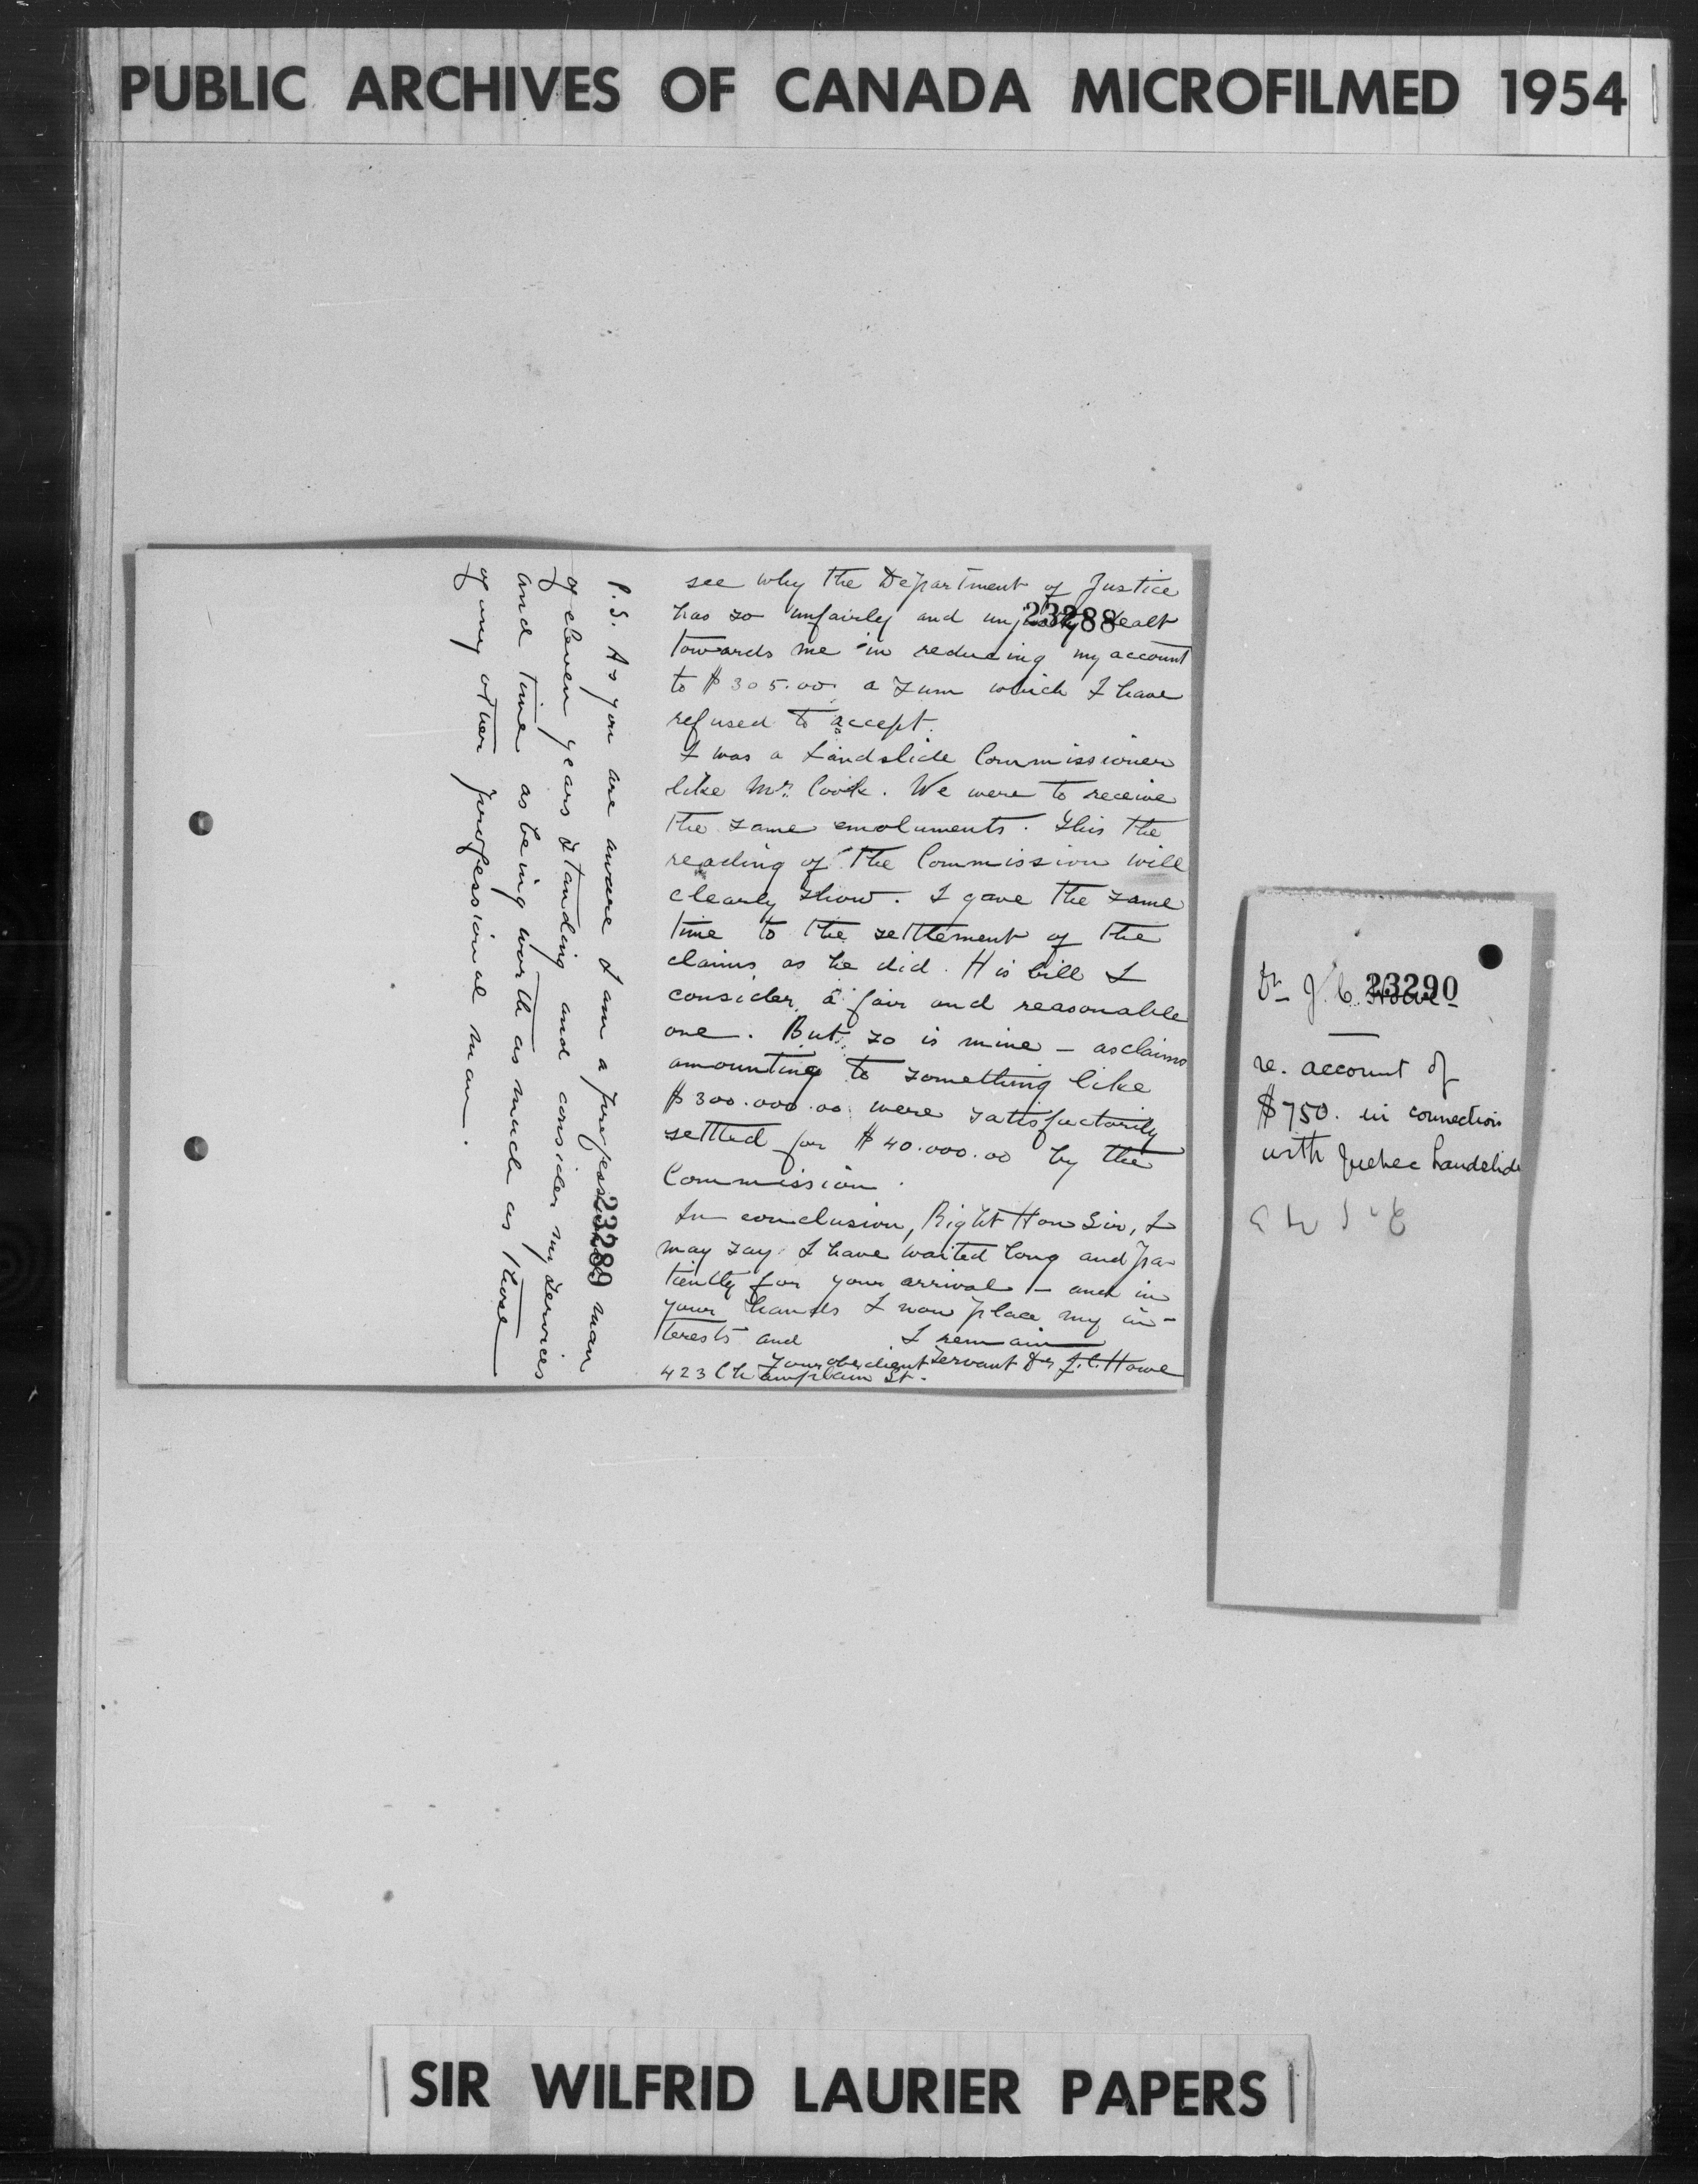 PUBLIC ARCHIVES OF CANADA MICROFILMED 1954
see why the Department of Justice
has so unfairly and unjustly dealt
23288
towards me in reducing my account
to $305.00 a sum which I have
refused to accept.
I was a Landslide Commissioner
like Mr. Cook. We were to receive
the same emoluments. This the
reading of the Commission will
clearly show. I gave the same
time to the settlement of the
claims as he did. His bill I
consider a fair and reasonable
one. But so is mine - as claims
amounting to something like
$300.000.00 were satisfactorily
settled for $40.000.00 by the
Commission.
In conclusion, Right Hon Sir, I
may say I have waited long and pa-
tiently for your arrival - and in
your hands I now place my in-
terests and I remain
Your obedient Servant Dr J.C. Howe
423 Champlain St.
P.S. As you are aware I am a professional man
23289
of eleven years standing and consider my services
and time as being worth as much as those
of any other professional man.
Dr J.C. Howe
23290
re. account of
$750. in connection
with Quebec Landslide
SIR WILFRID LAURIER PAPERS